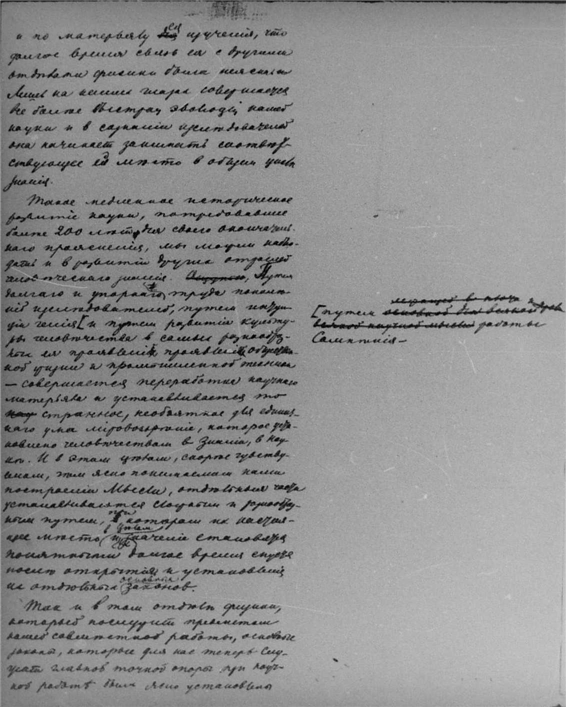 и по матерьялу ея изучения, что
долгое время связь ея с другими
отделами физики была неясна.
Лишь на наших глазах совершается
все более быстрая эволюция нашей
науки и в сознании исследователей
она начинает занимать соответ-
ствующее ей место в общем
знания.
Такое медленное историческое
развитие науки, потребовавшее
более 200 лет для своего окончатель-
ного прояснения, мы можем наблю-
дать и в развитии других отраслей
человеческого знания. Путем
долгаго и упорнаго труда поколе-
ний исследователей, путем интуи-
ции гения [и путем развития культу-
ры человечества в самых разнообраз-
ных ея проявлениях
и промышленной техники
— совершается переработка научнаго
матерьяла и устанавливается то
странное, необъятное для единич-
наго ума мировоззрение, которое уста-
новлено человечеством в знании, в нау-
ке. И в этом целом, скорее чувству-
емом, чем ясно понимаемом нами
построении мысли, отдельныя части
устанавливаются сложным и разнообраз-
ным путем, при котором их настоя-
щее место и значение становятся
понятными долгое время спустя
после открытия и установления
их отдельных основных законов.
Так и в том отделе физики,
который послужит предметом
нашей совместной работы, основные
законы, которые для нас теперь слу-
жат главной точкой опоры при науч-
ной работе были ясно установлены
[путем
работы